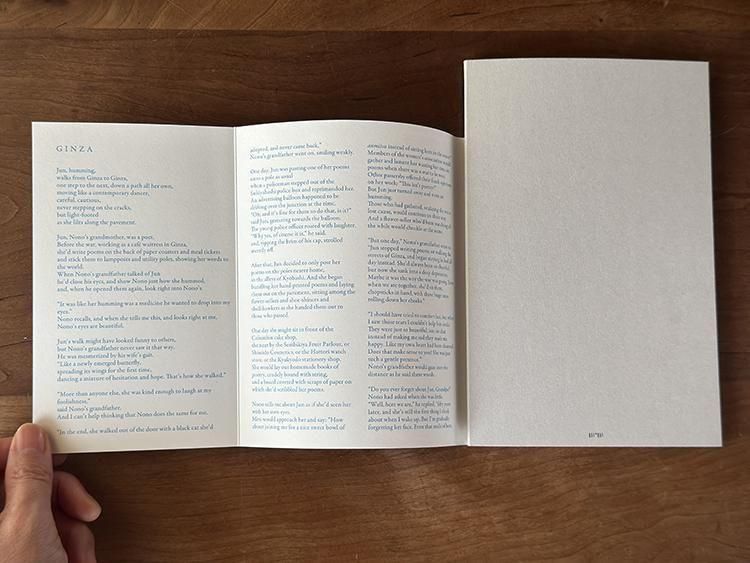 GINZA
Jun, humming,
walks from Ginza to Ginza,
one step to the next, down a path all her own,
moving like a contemporary dancer,
careful, cautious,
never stepping on the cracks,
but light-footed
as she flits along the pavement.
Jun, Nono's grandmother, was a poet.
Before the war, working as a café waitress in Ginza,
she'd write poems on the back of paper coasters and meal tickets
and stick them to lampposts and utility poles, showing her words to
the world.
When Nono's grandfather talked of Jun
he'd close his eyes, and show Nono just how she hummed,
and, when he opened them again, look right into Nono's
"It was like her humming was a medicine he wanted to drop into my
eyes."
Nono recalls, and when she tells me this, and looks right at me,
Nono's eyes are beautiful.
Jun's walk might have looked funny to others,
but Nono's grandfather never saw it that way.
He was mesmerized by his wife's gait.
"Like a newly emerged butterfly,
spreading its wings for the first time,
dancing a mixture of hesitation and hope. That's how she walked."
"More than anyone else, she was kind enough to laugh at my
foolishness,"
said Nono's grandfather.
And I can't help thinking that Nono does the same for me.
"In the end, she walked out of the door with a black cat she'd
adopted, and never came back,"
Nono's grandfather went on, smiling weakly.
One day, Jun was pasting one of her poems
onto a pole as usual
when a policeman stepped out of the
Sukiyabashi police box and reprimanded her.
An advertising balloon happened to be
drifting over the junction at the time.
"Oh, and it's fine for them to do that, is it?"
said Jun, gesturing towards the balloon.
The young police officer roared with laughter.
"Why yes, of course it is," he said,
and, tipping the brim of his cap, strolled
merrily off.
After that, Jun decided to only post her
poems on the poles nearest home,
in the alleys of Kyobashi. And she began
bundling her hand-printed poems and laying
them out on the pavement, sitting among the
flower-sellers and shoe-shiners and
doll-hawkers as she handed them out to
those who passed.
One day she might sit in front of the
Colombin cake shop,
the next by the Senbikiya Fruit Parlour, or
Shiseido Cosmetics, or the Hattori watch
store, or the Kyukyodo stationery shop.
She would lay out homemade books of
poetry, crudely bound with string,
and a board covered with scraps of paper on
which she'd scribbled her poems.
Nono tells me about Jun as if she'd seen her
with her own eyes.
Men would approach her and say: "How
about joining me for a nice sweet bowl of
anmitsu instead of sitting here in the street?"
Members of the women's association would
gather and lament her wasting her time on
poems when there was a war to be won.
Other passersby offered their
on her work: "This isn't poetry!"
But Jun just turned away and went on
humming.
Those who had gathered, realizing she was a
lost cause, would continue on their way.
And a flower-seller who'd been watching all
the while would chuckle at the scene.
"But one day," Nono's grandfather went on,
"Jun stopped writing poems, or walking the
streets of Ginza, and began staying in bed all
day instead. She'd always been so cheerful,
but now she sank into a deep depression.
Maybe it was the way the war was going.
when we ate together, she'd sit there,
chopsticks in hand, with these huge tears
rolling down her cheeks."
"I should have tried to comfort her, but when
I saw those tears I couldn't help but smile.
They were just so beautiful, see, so that
instead of making me sad they made me
happy. Like my own heart had been cleansed.
Does that make sense to you? She was just
such a gentle presence."
Nono's grandfather would gaze into the
distance as he said these words.
"Do you ever forget about Jun, Grandpa?"
Nono had asked when she was little.
"Well, here we are," he replied, "fifty years
later, and she's still the first thing I think
about when I wake up. But I'm gradually
forgetting her face. Even that smile of hers,